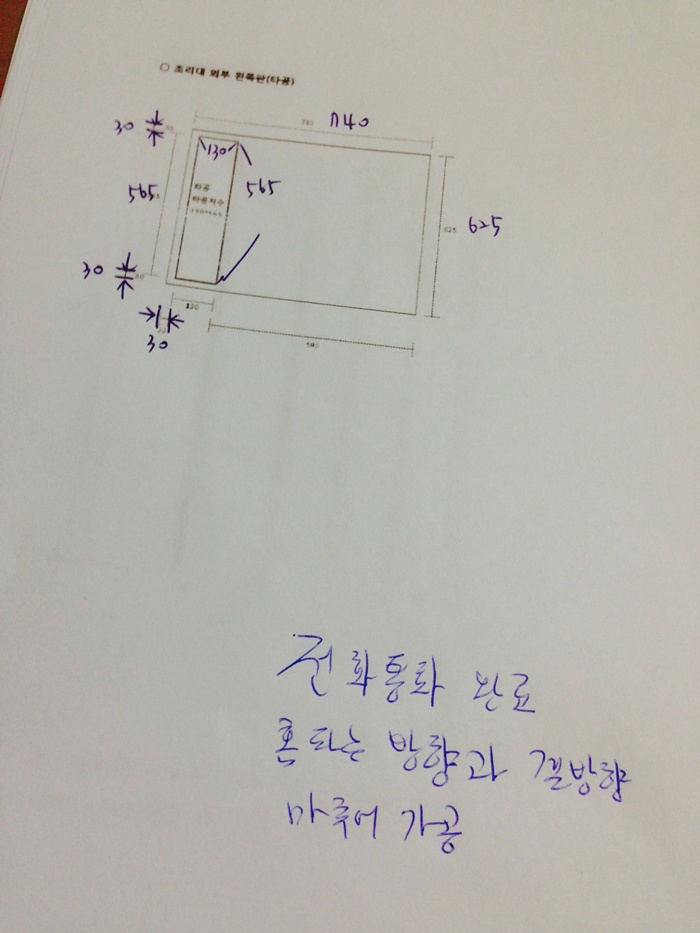 ○ 조리대 외부 왼쪽판(타공)
30
740
130
565
565
타공
타공치수
130*565
625
625
30
30
전화통화 완료
홈 되는 방향과 결방향
마루어 가공